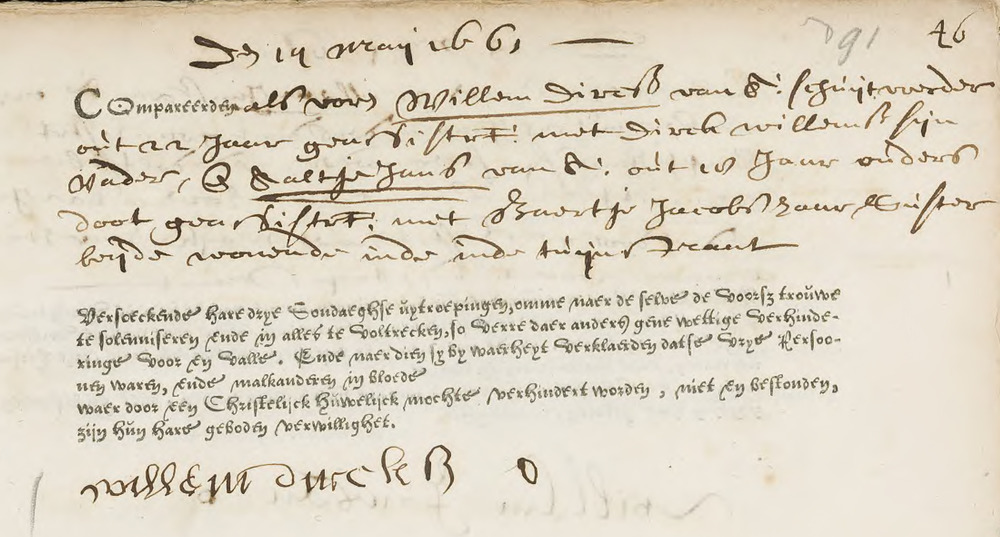 46
D91
Den 14 maij 1661
Compareerden als vore Willem Dircsz van A: schuijtvoerder
out 22 Jaar geassistrt: met Dirck willemsz sijn
Vader, & Aaltje Jans van A: out 18 Jaar ouders
doot geassistrt: met Baertje Jacobs haar Suster
beijde wonende inde inde tuijnstraat
Versoeckende hare drye Sondaeghse uytroepingen, omme naer de selve de voorsz trouwe
te solemniseren ende in alles te voltrecken, so verre daer anders gene wettige verhinde-
ringe voor en valle. Ende naer dien sy by waerheyt verklaerden datse vrye Persoo-
nen waren, ende malkanderen in bloede
waer door een Christelijck Huwelijck mochte verhindert worden, niet en bestonden,
zijn hun hare geboden verwillighet.
willem dircksz